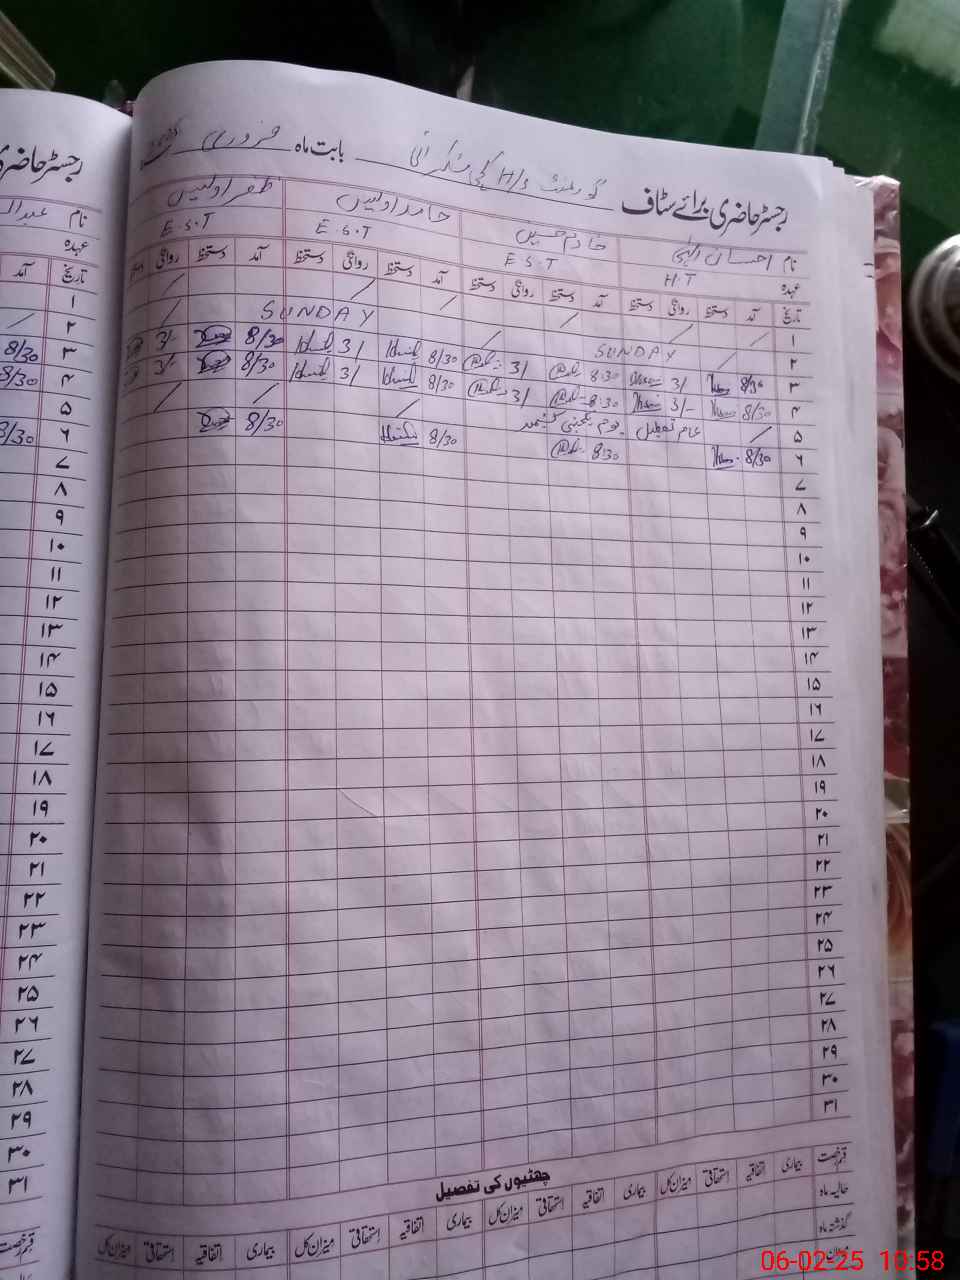 رجسٹر حاضری برائے سٹاف گورنمنٹ H/S بابت ماہ فروری
نام احسان الٰہی خادم حسین حامد اویس ظفر اویس
عہدہ H.T E.S.T E.S.T E.S.T
تاریخ آمد دستخط روانگی دستخط آمد دستخط روانگی دستخط آمد دستخط روانگی دستخط آمد دستخط روانگی
۱ / / / / / / / /
۲ / / SUNDAY SUNDAY
۳ 8/30 3/ 8:30 3/ 8/30 3/ 8/30 3/-
۴ 8/30 3/- 8:30 3/ 8/30 3/ 8/30 3/-
۵ / عام تعطیل یوم یکجہتی کشمیر / / /
۶ 8/30 8:30 8/30 8/30
۷
۸
۹
۱۰
۱۱
۱۲
۱۳
۱۴
۱۵
۱۶
۱۷
۱۸
۱۹
۲۰
۲۱
۲۲
۲۳
۲۴
۲۵
۲۶
۲۷
۲۸
۲۹
۳۰
۳۱
چھٹیوں کی تفصیل
قسم رخصت بیماری اتفاقیہ استحقاقی میزان کل بیماری اتفاقیہ استحقاقی میزان کل بیماری اتفاقیہ استحقاقی میزان کل بیماری اتفاقیہ استحقاقی میزان کل
حالیہ ماہ
گذشتہ ماہ
میزان
رجسٹر حاضری
نام
عہدہ
تاریخ آمد
۱
۲ /
۳ 8/30
۴ 8/30
۵
۶ 8/30
۷
۸
۹
۱۰
۱۱
۱۲
۱۳
۱۴
۱۵
۱۶
۱۷
۱۸
۱۹
۲۰
۲۱
۲۲
۲۳
۲۴
۲۵
۲۶
۲۷
۲۸
۲۹
۳۰
۳۱
قسم رخصت
06-02-25 10:58